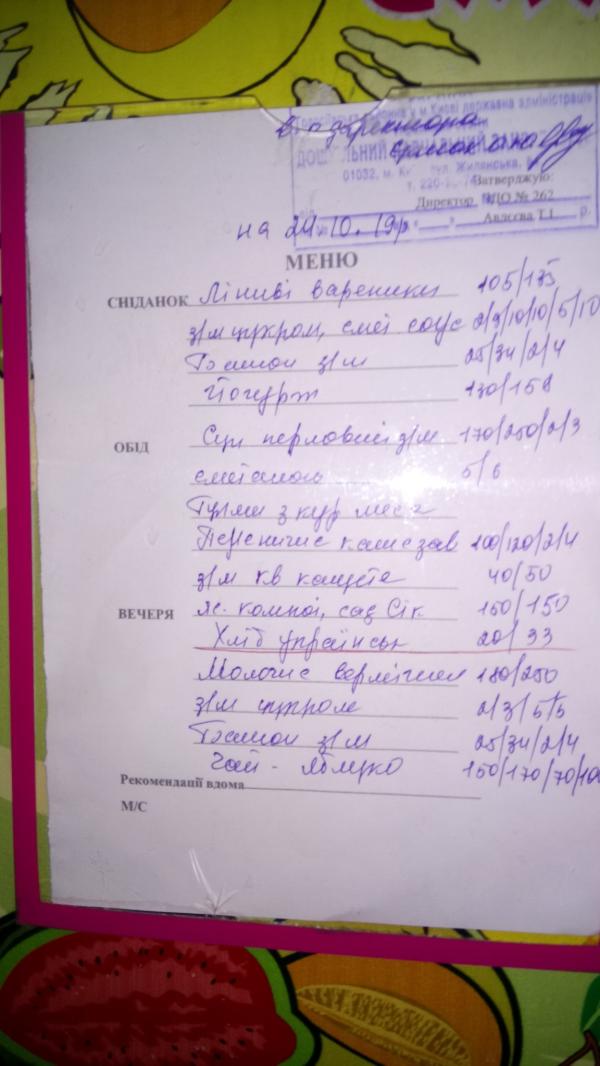 В. о директора
дошкільний навчальний заклад
01032, м. Київ, вул. Жилянська,
т. 220-
Затверджую:
Директор ДО № 262
Авдєєва Т.І.
на 24.10.19р
МЕНЮ
СНІДАНОК Ліниві вареники 105/135
з/м цукром, смет соус 2/3/10/10/5/10
Батон з/м 25/34/2/4
Йогурт 130/158
ОБІД Суп перловий з/м 170/250/2/3
сметаною 5/6
з кур мяса
Пшенична каша зав 100/120/2/4
з/м кв капуста 40/50
ВЕЧЕРЯ компот, сад Сік 150/150
Хліб українськ 20/33
Молочна вермішел 180/250
з/м цукром 2/3/5/5
Батон з/м 25/34/2/4
Чай - яблуко 150/170/70/100
Рекомендації вдома
М/С